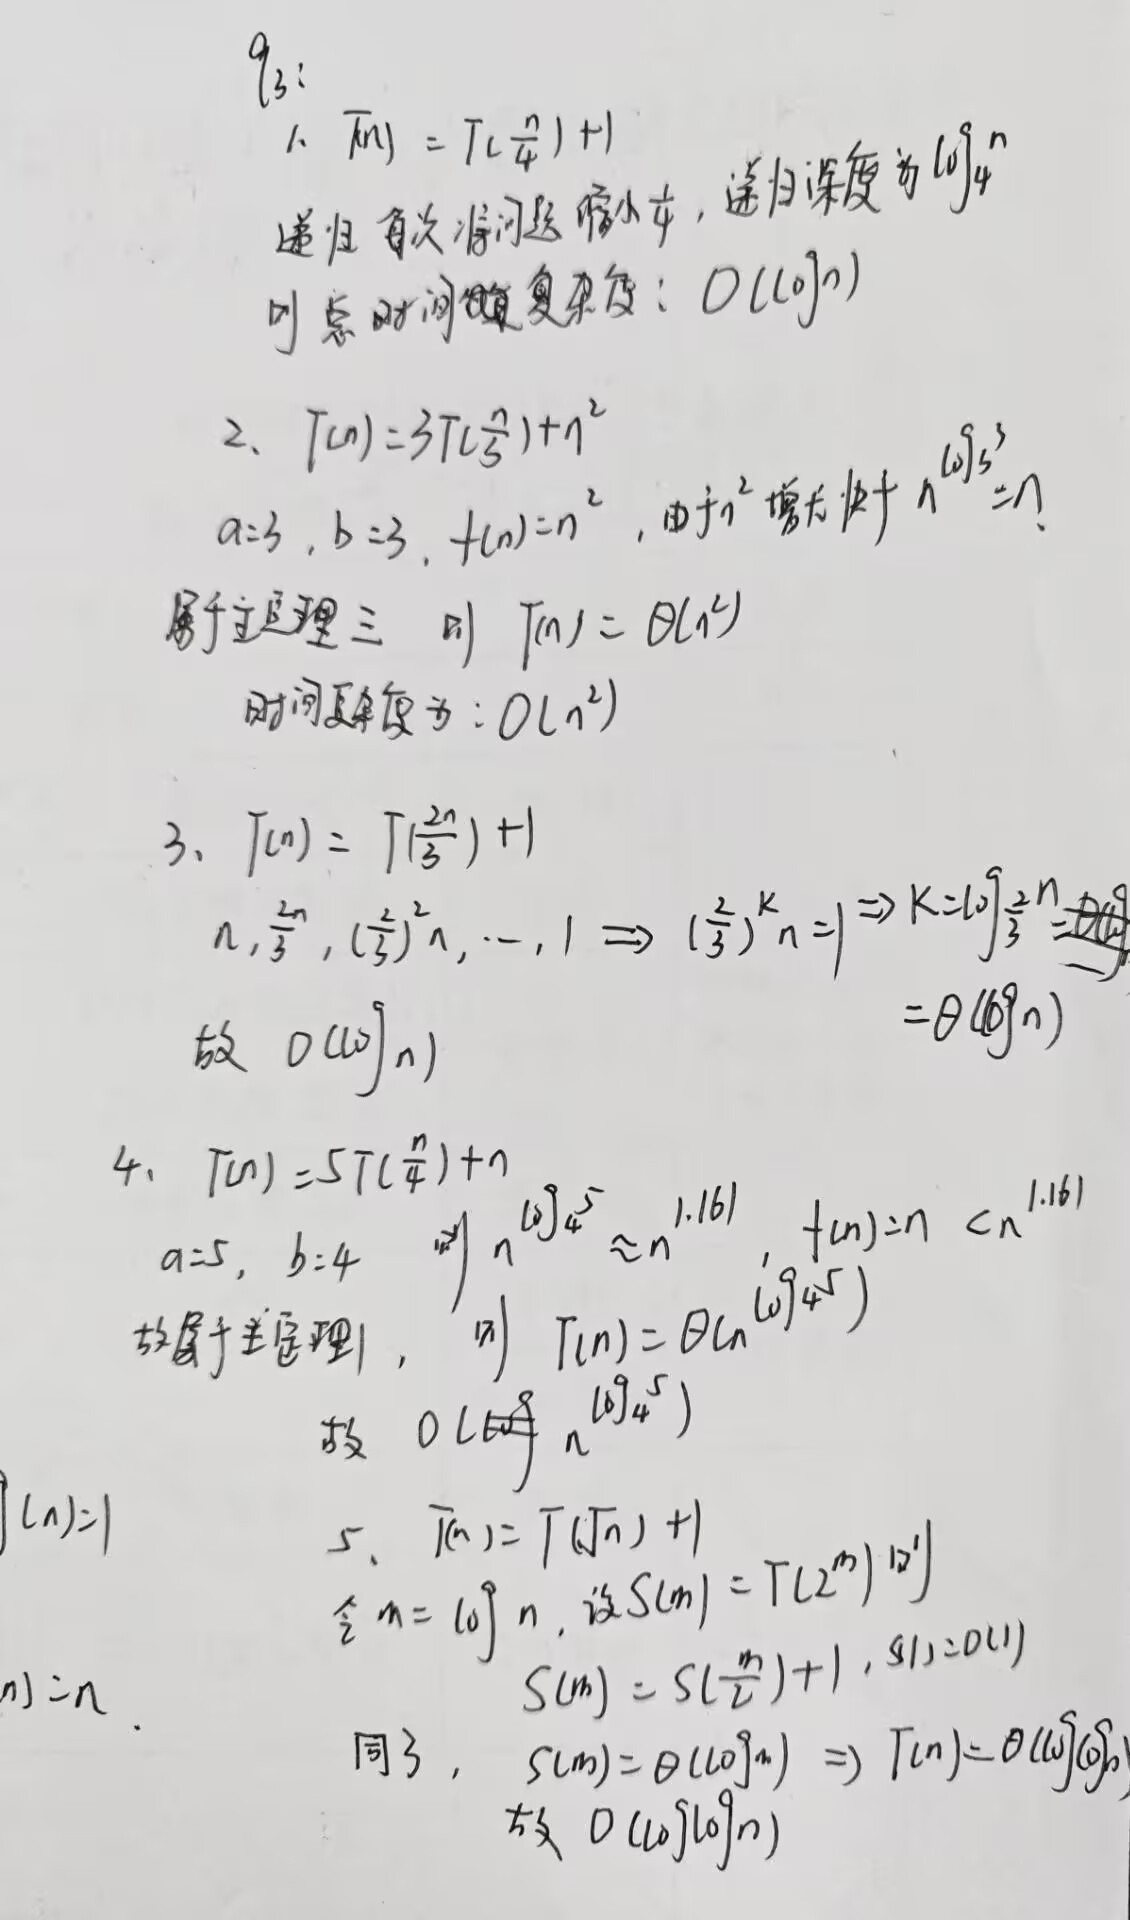 q3:
1. T(n) = T(n/4) + 1
递归每次将问题缩小1/4, 递归深度为log₄n
则总时间复杂度: O(logn)
2、 T(n) = 3T(n/3) + n²
a=3, b=3, f(n)=n², 由于n²增长快于 n^log₃3 = n.
属于主定理三 则 T(n) = θ(n²)
时间复杂度为: O(n²)
3、 T(n) = T(2n/3) + 1
n, 2n/3, (2/3)²n, ..., 1 ⇒ (2/3)^k n = 1 ⇒ K = log_2/3 n
= θ(logn)
故 O(logn)
4、 T(n) = 5T(n/4) + n
a=5, b=4 则 n^log₄5 ≈ n^1.161, f(n)=n < n^1.161
故属于主定理1, 则 T(n) = θ(n^log₄5)
故 O(n^log₄5)
(n)=1
5、 T(n) = T(√n) + 1
令 m = log n, 设S(m) = T(2^m) 则
S(m) = S(m/2) + 1, S(1)=O(1)
n)=n.
同3, S(m) = θ(logm) ⇒ T(n) = θ(loglogn)
故 O(loglogn)